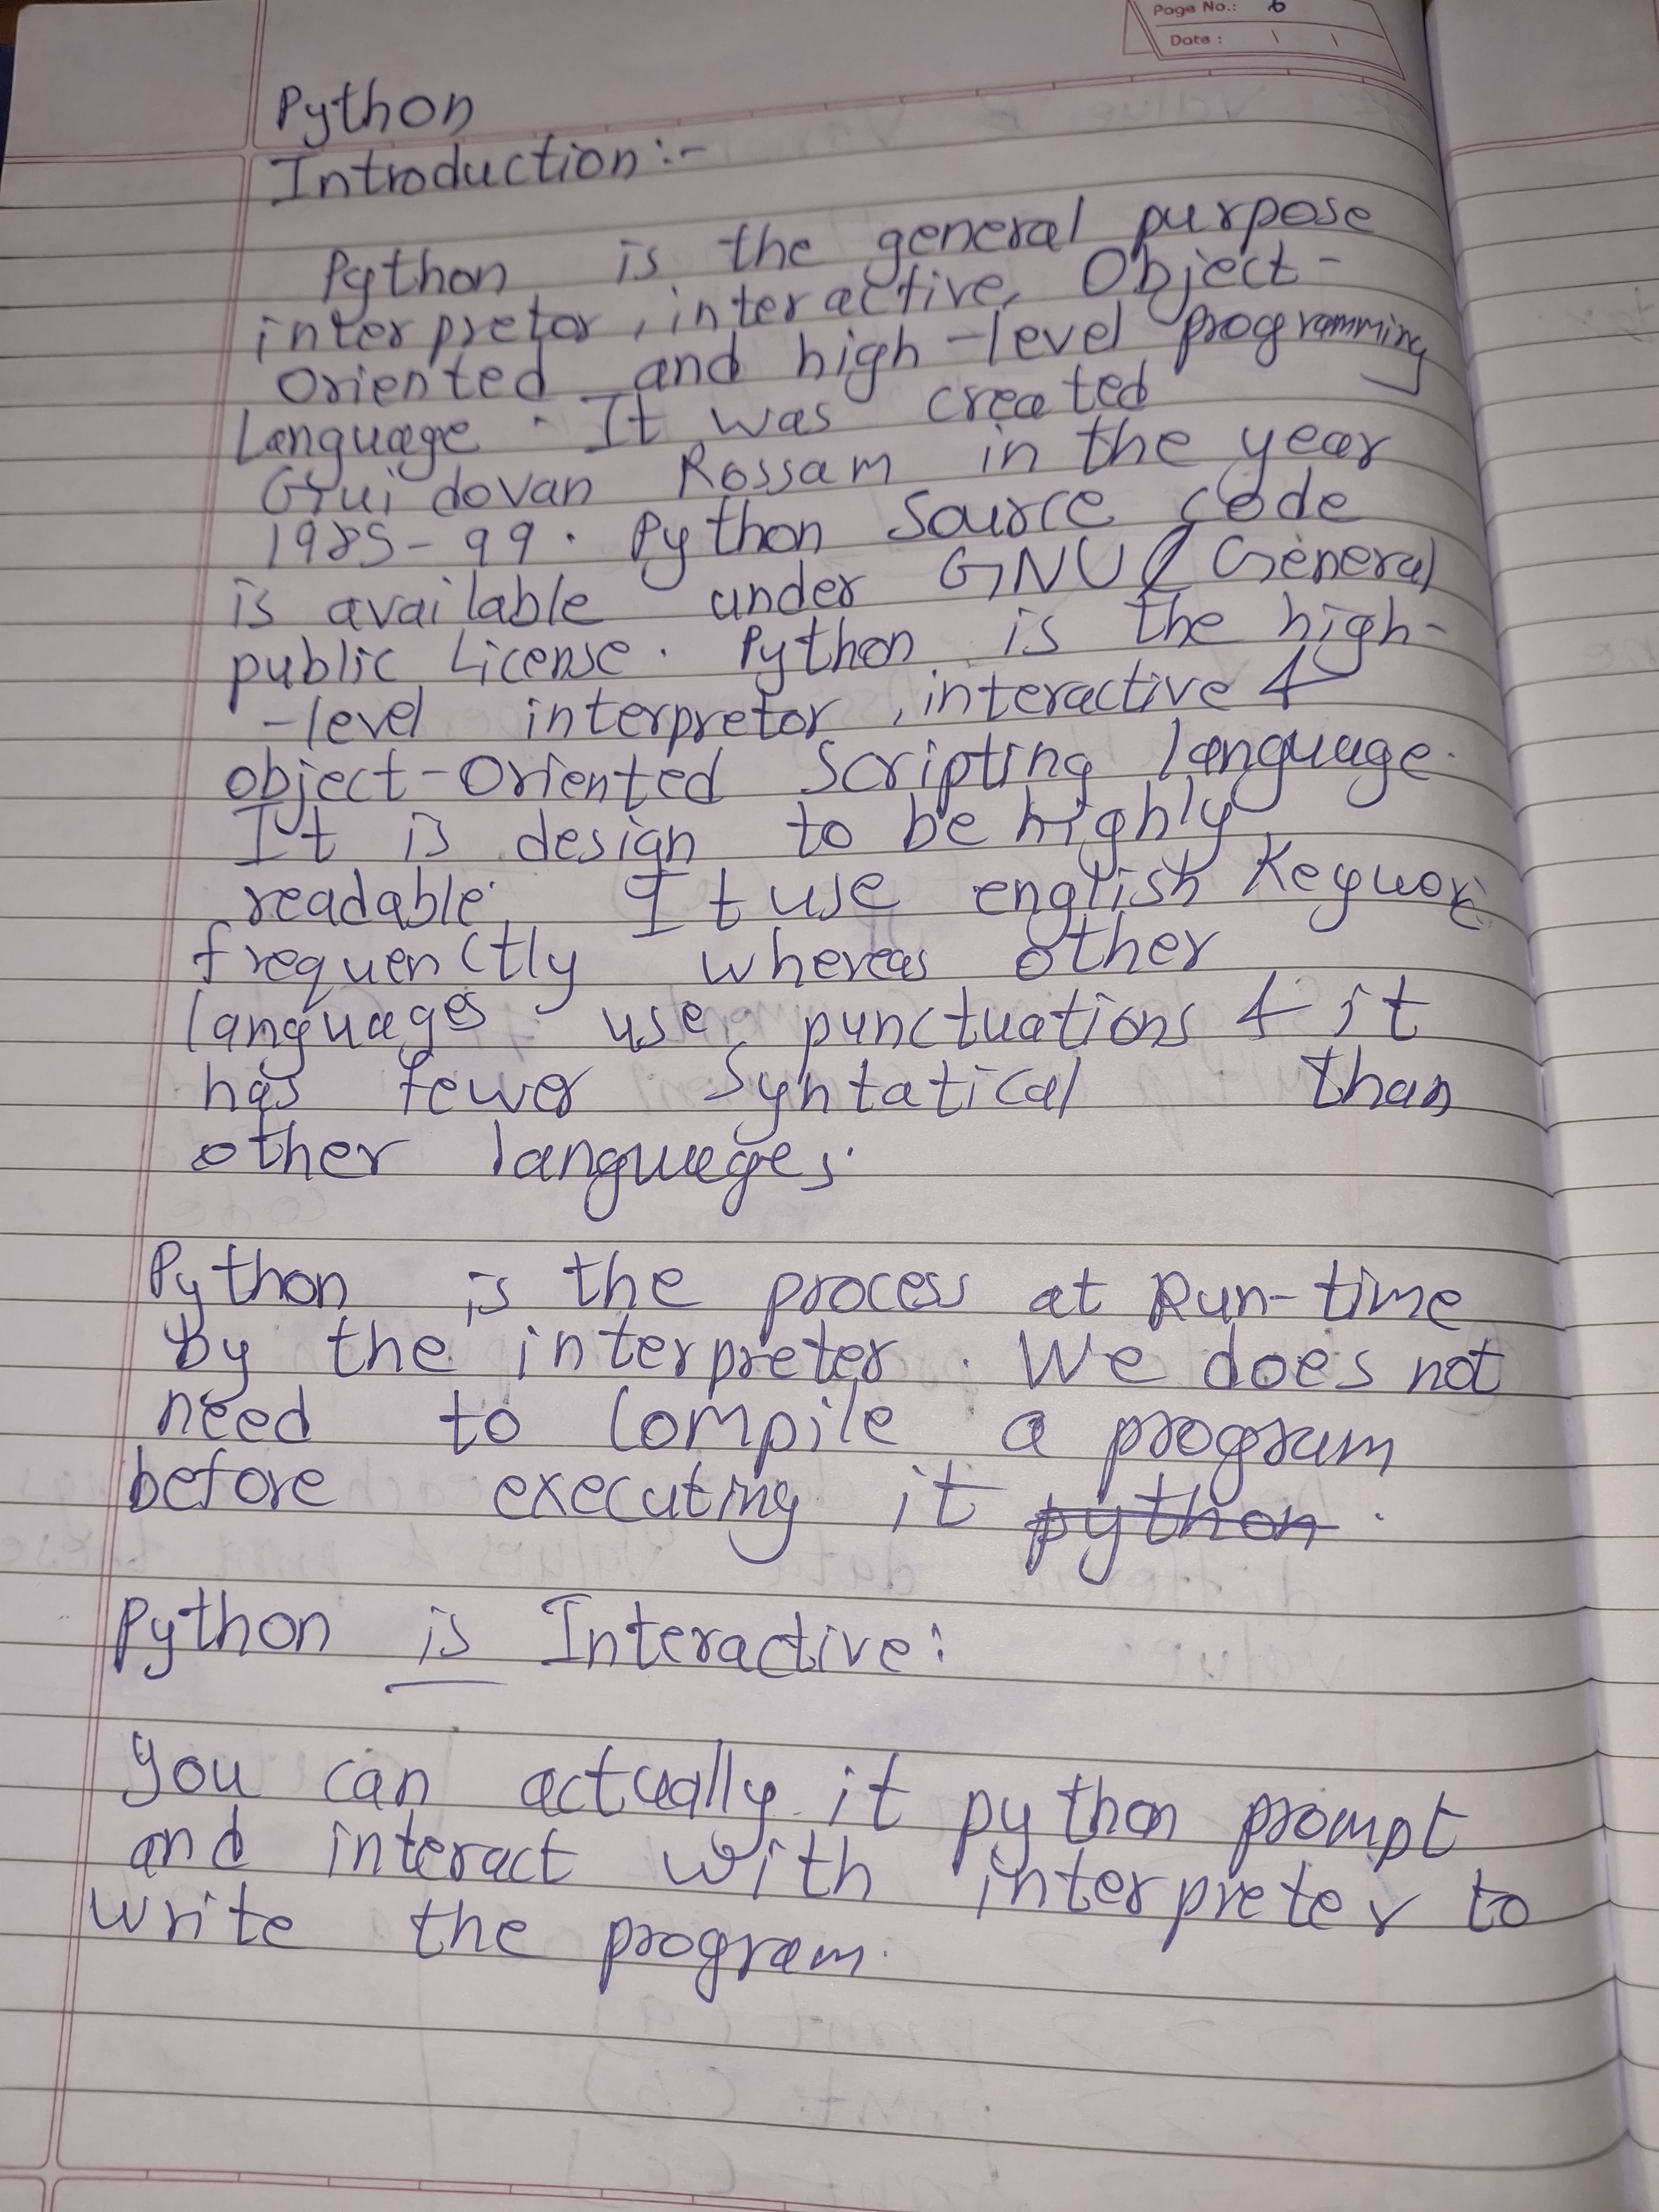 Page No.: 6
Date :
Python
Introduction:-
Python is the general purpose
interpretor, interactive, Object-
Oriented and high-level programming
Language. It was created
Guidovan Rossam in the year
1985-99. Python Source code
is available under GNU General
public License. Python is the high-
-level interpretor, interactive &
object-Oriented Scripting language.
It is design to be highly
readable. It use english Keywor
frequenctly whereas other
languages use punctuations & it
has fewer Syntatical than
other languages.
Python is the process at Run-time
by the interpreter. We does not
need to Compile a program
before executing it python.
Python is Interactive:
You can actually it python prompt
and interact with interpreter to
write the program.